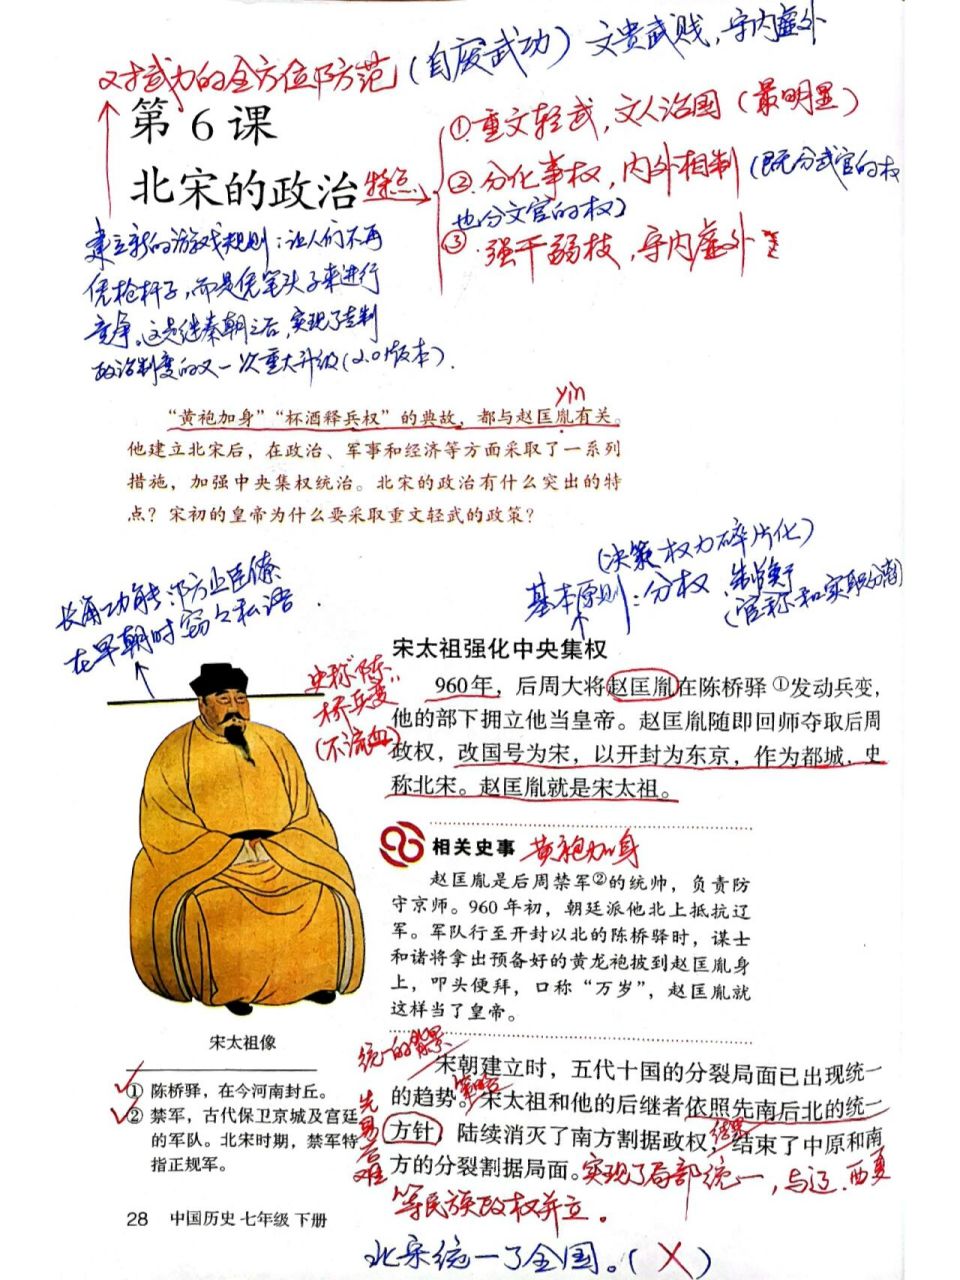 对武力的全方位防范(自废武功)文贵武贱,守内虚外
第6课
北宋的政治
特点
①重文轻武,文人治国(最明显)
②分化事权,内外相制(既分武官的权
也分文官的权)
③强干弱枝,守内虚外
建立新的游戏规则:让人们不再
凭枪杆子,而是凭笔头子来进行
竞争。这是继秦朝之后,实现了专制
政治制度的又一次重大升级(2.0版本).
yìn
“黄袍加身”“杯酒释兵权”的典故,都与赵匡胤有关。
他建立北宋后,在政治、军事和经济等方面采取了一系列
措施,加强中央集权统治。北宋的政治有什么突出的特
点?宋初的皇帝为什么要采取重文轻武的政策?
(决策权力碎片化)
基本原则:分权、制衡
(官称和实职分离)
长翅功能:防止臣僚
在早朝时窃窃私语.
宋太祖强化中央集权
960年,后周大将赵匡胤在陈桥驿①发动兵变,
他的部下拥立他当皇帝。赵匡胤随即回师夺取后周
政权,改国号为宋,以开封为东京,作为都城,史
称北宋。赵匡胤就是宋太祖。
史称“陈
桥兵变”
(不流血)
相关史事 黄袍加身
赵匡胤是后周禁军②的统帅,负责防
守京师。960年初,朝廷派他北上抵抗辽
军。军队行至开封以北的陈桥驿时,谋士
和诸将拿出预备好的黄龙袍披到赵匡胤身
上,叩头便拜,口称“万岁”,赵匡胤就
这样当了皇帝。
宋太祖像
①陈桥驿,在今河南封丘。
②禁军,古代保卫京城及宫廷
的军队。北宋时期,禁军特
指正规军。
统一的背景
宋朝建立时,五代十国的分裂局面已出现统一
的趋势。宋太祖和他的后继者依照先南后北的统一
方针,陆续消灭了南方割据政权,结束了中原和南
方的分裂割据局面。实现了局部统一,与辽、西夏
等民族政权并立。
策略
先易后难
结果
28 中国历史 七年级 下册
北宋统一了全国。(×)